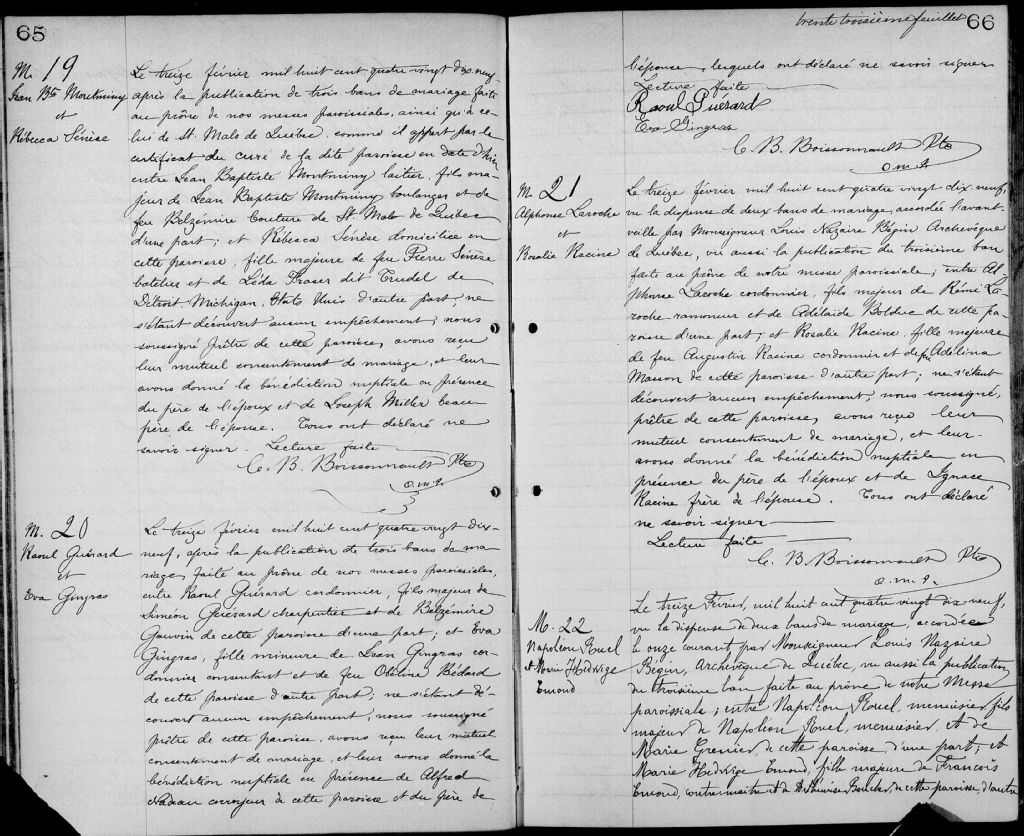 65
M. 19
Jean Bte Montminy
et
Rébecca Sénèse
Le treize février mil huit cent quatre vingt dix-neuf,
après la publication de trois bans de mariage faite
au prône de nos messes paroissiales, ainsi qu'à ce-
lui de St. Malo de Québec, comme il appert par le
certificat du curé de la dite paroisse en date d'hier
entre Jean Baptiste Montminy laitier, fils ma-
jeur de Jean Baptiste Montminy boulanger et de
feu Belzémire Couture de St. Malo de Québec
d'une part; et Rébecca Sénèse domiciliée en
cette paroisse, fille majeure de feu Pierre Sénèse
batelier et de Léda Fraser dit Trudel de
Détroit Michigan, États Unis d'autre part, ne
s'étant découvert aucun empêchement; nous
soussigné prêtre de cette paroisse, avons reçu
leur mutuel consentement de mariage, et leur
avons donné la bénédiction nuptiale en présence
du père de l'époux et de Joseph Miller beau
père de l'épouse. Tous ont déclaré ne
savoir signer. Lecture faite
C. B. Boissonnault Ptre
o.m.i.
M. 20
Raoul Guérard
et
Eva Gingras
Le treize février mil huit cent quatre vingt dix-
neuf, après la publication de trois bans de ma-
riage, faite au prône de nos messes paroissiales,
entre Raoul Guérard cordonnier, fils majeur de
Siméon Guérard charpentier et de Belzémire
Gauvin de cette paroisse d'une part; et Eva
Gingras, fille mineure de Jean Gingras cor-
donnier consentant et de feu Obéline Bédard
de cette paroisse d'autre part; ne s'étant dé-
couvert aucun empêchement, nous soussigné
prêtre de cette paroisse, avons reçu leur mutuel
consentement de mariage, et leur avons donné la
bénédiction nuptiale en présence de Alfred
Nadeau corroyeur de cette paroisse et du père de
trente troisième feuillet
66
l'épouse, lesquels ont déclaré ne savoir signer
Lecture faite
Raoul Guérard
Eva Gingras
C. B. Boissonnault Ptre
o.m.i.
M. 21
Alphonse Laroche
et
Rosalie Racine
Le treize février mil huit cent quatre vingt dix-neuf,
vu la dispense de deux bans de mariage accordée l'avant-
veille par Monseigneur Louis Nazaire Bégin Archevêque
de Québec, vu aussi la publication du troisième ban
faite au prône de notre messe paroissiale; entre Al-
phonse Laroche cordonnier, fils majeur de Rémi La-
roche ramoneur et de Adélaïde Bolduc de cette pa-
roisse d'une part, et Rosalie Racine, fille majeure
de feu Augustin Racine cordonnier et de feu Adelina
Masson de cette paroisse d'autre part; ne s'étant
découvert aucun empêchement, nous soussigné,
prêtre de cette paroisse, avons reçu leur
mutuel consentement de mariage, et leur
avons donné la bénédiction nuptiale en
présence du père de l'époux et de Ignace
Racine frère de l'épouse. Tous ont déclaré
ne savoir signer
Lecture faite
C. B. Boissonnault Ptre
o.m.i.
M. 22
Napoléon Ruel
et Marie Hedwige
Emond
Le treize Février, mil huit cent quatre vingt dix neuf,
vu la dispense de deux bans de mariage, accordée
le onze courant par Monseigneur Louis Nazaire
Bégin, Archevêque de Québec, vu aussi la publication
du troisième ban faite au prône de notre Messe
paroissiale; entre Napoléon Ruel, menuisier, fils
majeur de Napoléon Ruel, menuisier, et de
Marie Grenier, de cette paroisse d'une part; et
Marie Hedwige Emond, fille majeure de François
Emond, contremaître et de Boucher, de cette paroisse, d'autre